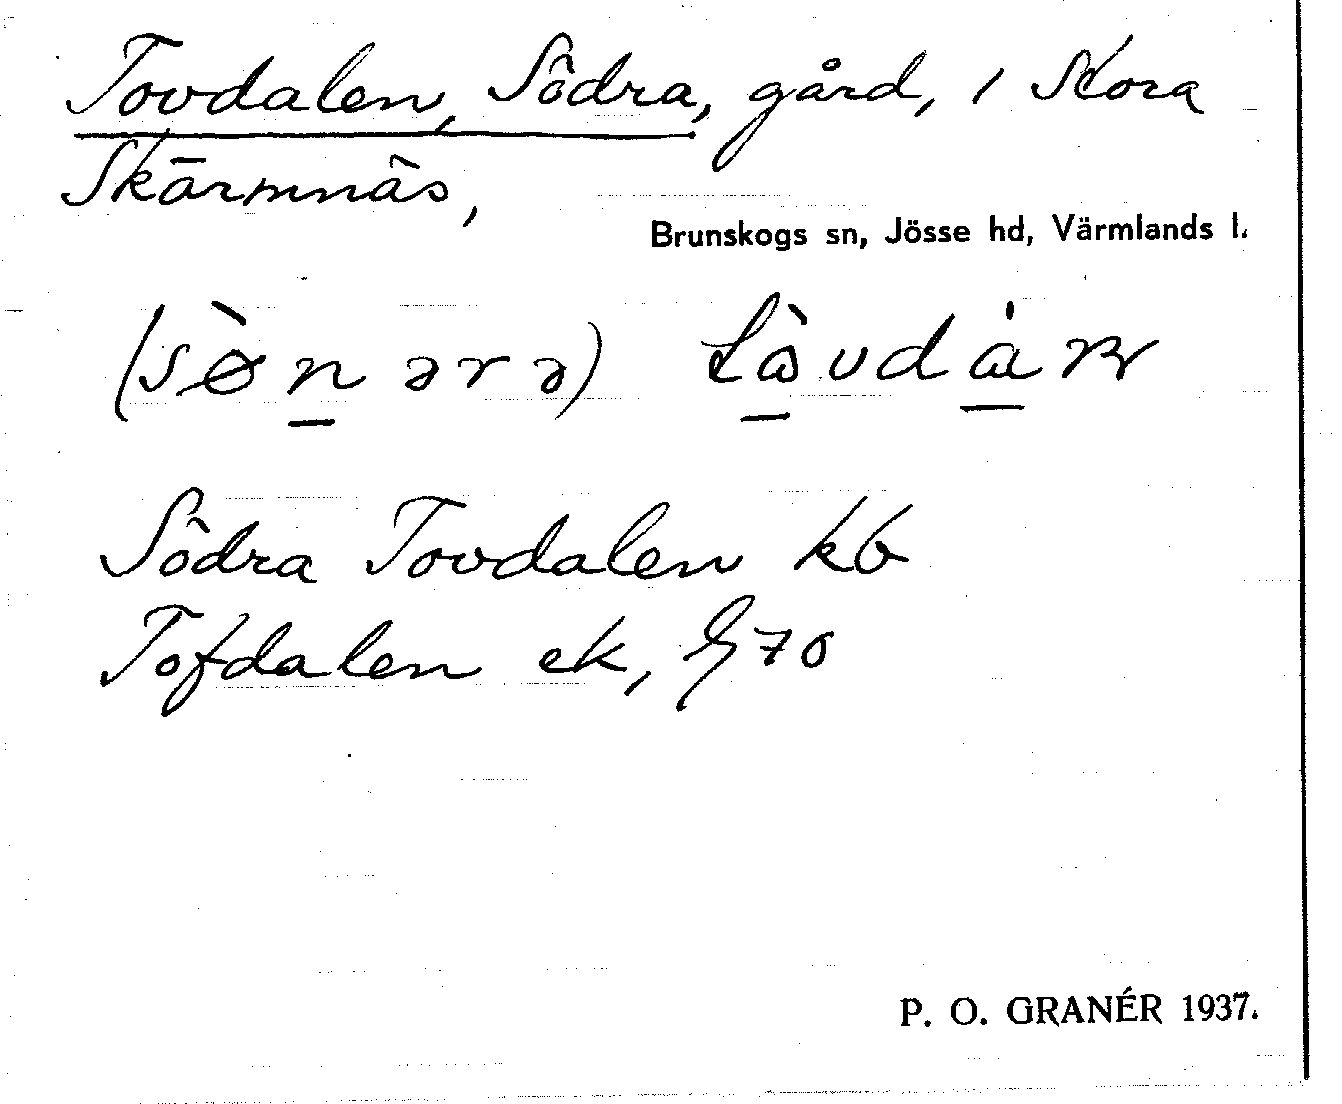 Tovdalen, Södra, gård, i Stora
Skärmnäs,
Brunskogs sn, Jösse hd, Värmlands l.
Södra Tovdalen kb
Tofdalen ek, G 70
P. O. GRANÉR 1937.